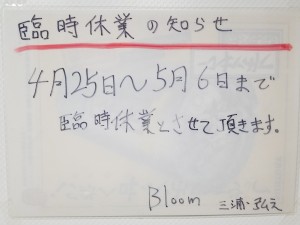 臨時休業の知らせ
4月25日～5月6日まで
臨時休業とさせて頂きます。
Bloom 三浦